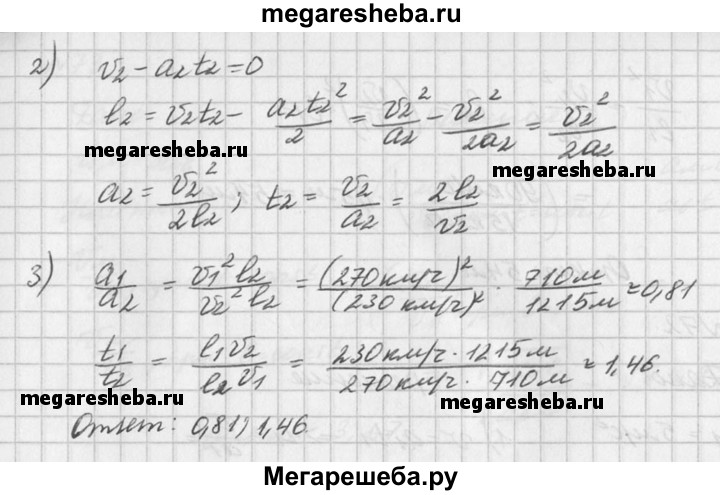 megaresheba.ru
2) v₂ - a₂t₂ = 0
l₂ = v₂t₂ - a₂t₂²/2 = v₂²/a₂ - v₂²/2a₂ = v₂²/2a₂
www.megaresheba.ru
www.megaresheba.ru
a₂ = v₂²/2l₂; t₂ = v₂/a₂ = 2l₂/v₂
3) a₁/a₂ = v₁²l₂/v₂²l₂ = (270 км/ч)²/(230 км/ч)² · 710м/1215м ≈ 0,81
t₁/t₂ = l₁v₂/l₂v₁ = 230 км/ч · 1215м/270 км/ч · 710м ≈ 1,46.
www.megaresheba.ru
www.megaresheba.ru
Ответ: 0,81; 1,46
Мегарешеба.ру